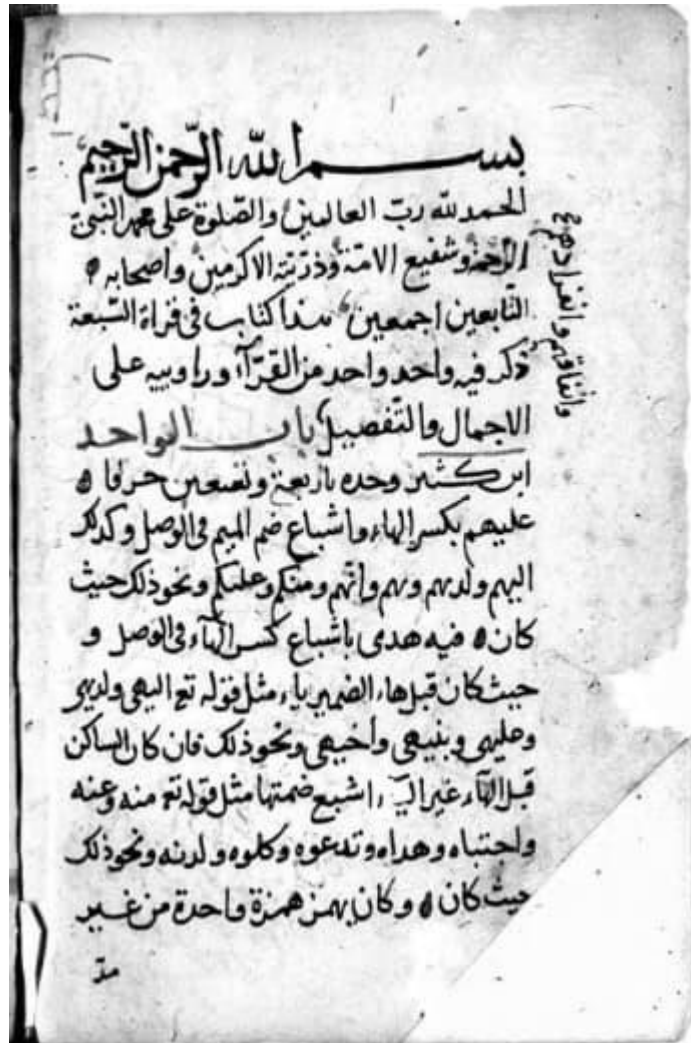 بسم الله الرحمن الرحيم
الحمد لله ربّ العالمين والصّلوة على محمد النّبىّ
الرّحمة وشفيع الامّة وذرّيته الاكرمين واصحابه
التّابعين اجمعين هذا كتاب فى قراة السّبعة
ذكر فيه واحد واحد من القرّاء وراوييه على
الاجمال والتّفصيل باب الواحد
ابن كثير وحده باربعة وتسعين حرفا
عليهم بكسر الهاء واشباع ضم الميم فى الوصل وكذلك
اليهم ولديهم وبهم وانهم ومنكم وعليكم ونحو ذلك حيث
كان ه فيه هدى باشباع كسر الهآء فى الوصل و
حيث كان قبل هاء الضمير ياء مثل قوله تع اليهى ولديهى
وعليهى وبنيهى واخيهى ونحو ذلك فان كان الساكن
قبل الهآء غير اليآء اشبع ضمتها مثل قوله تع منه وعنه
واجتباه وهداه وتدعوه وكلوه ولدنه ونحو ذلك
حيث كان ه وكان يهمز همزة واحدة من غير
مدّ
واتفاقهم وانفرادهم